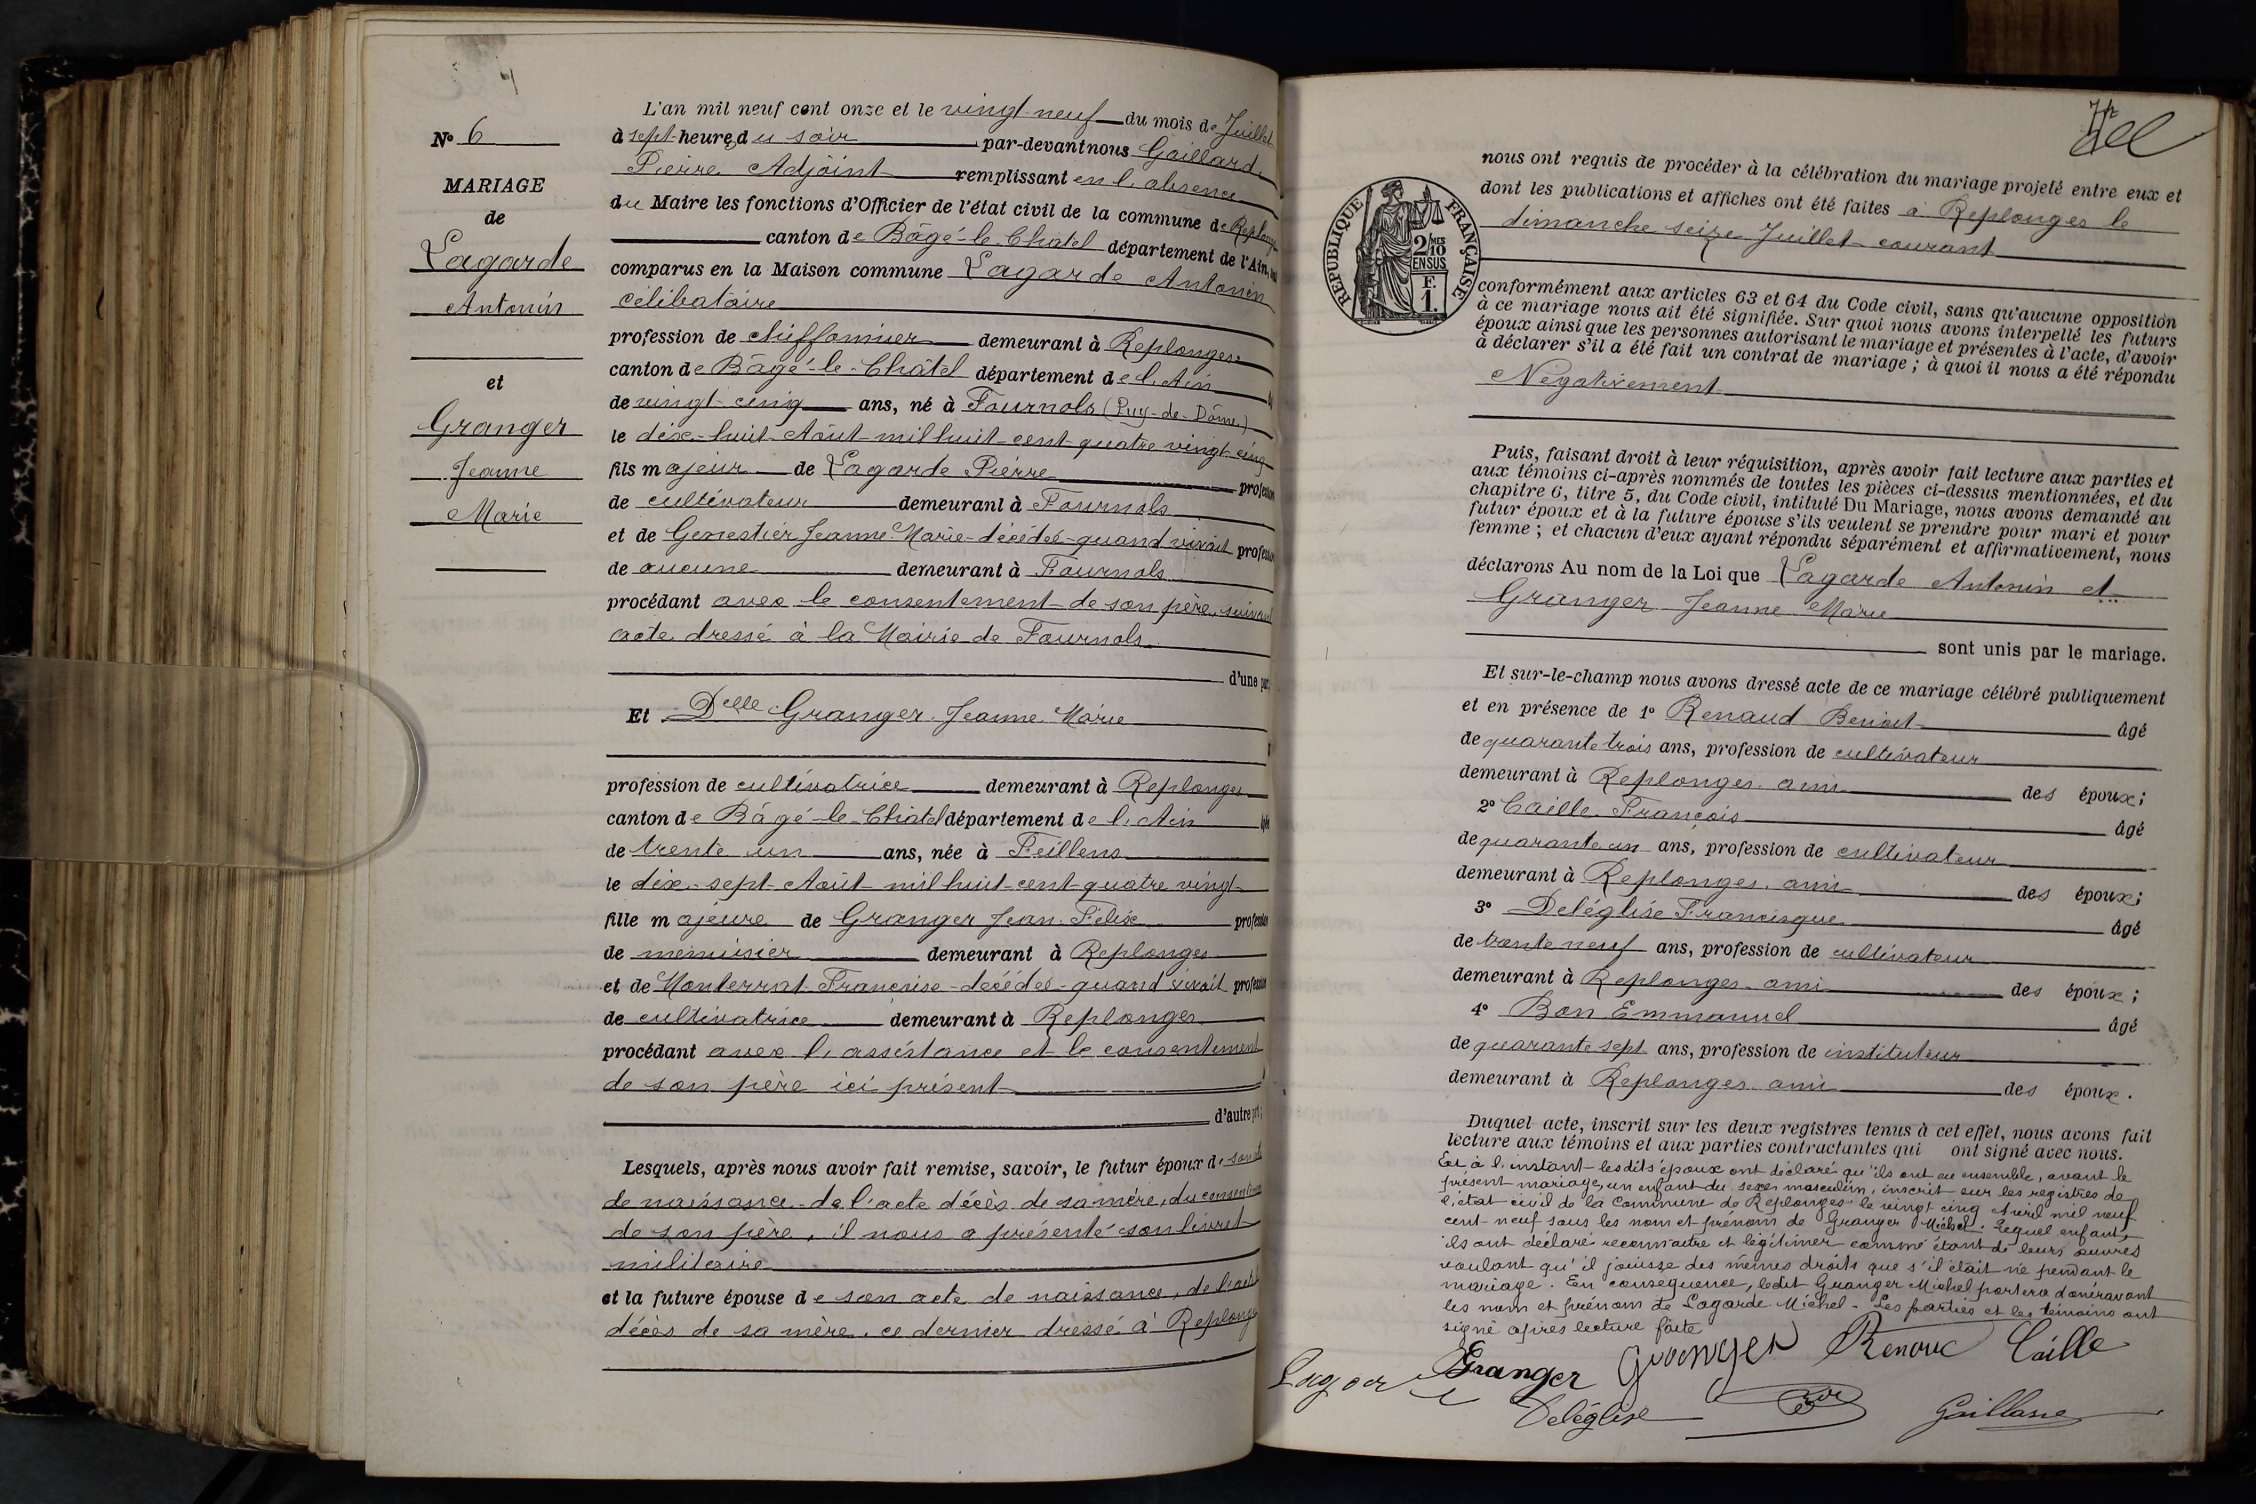 N° 6
MARIAGE
de
Lagarde
Antonin
et
Granger
Jeanne
Marie
L'an mil neuf cent onze et le vingt neuf du mois de Juillet
à sept heures du soir par-devant nous Gaillard
Pierre Adjoint remplissant en l'absence
du Maire les fonctions d'Officier de l'état civil de la commune de Replonges
canton de Bâgé-le-Châtel département de l'Ain,
comparus en la Maison commune Lagarde Antonin
célibataire
profession de chiffonnier demeurant à Replonges
canton de Bâgé-le-Châtel département de l'Ain
de vingt-cinq ans, né à Fournols (Puy-de-Dôme)
le dix-huit Août mil huit cent quatre vingt cinq
fils majeur de Lagarde Pierre profession
de cultivateur demeurant à Fournols
et de Genestier Jeanne Marie décédée quand vivait profession
de aucune demeurant à Fournols
procédant avec le consentement de son père, suivant
acte dressé à la Mairie de Fournols
d'une part,
Et Delle Granger Jeanne Marie
profession de cultivatrice demeurant à Replonges
canton de Bâgé-le-Châtel département de l'Ain âgée
de trente un ans, née à Feillens
le dix-sept Août mil huit cent quatre vingt
fille majeure de Granger Jean Félix profession
de menuisier demeurant à Replonges
et de Monterrat Françoise décédée quand vivait profession
de cultivatrice demeurant à Replonges
procédant avec l'assistance et le consentement
de son père ici présent
d'autre part;
Lesquels, après nous avoir fait remise, savoir, le futur époux de son acte
de naissance, de l'acte décès de sa mère, du consentement
de son père, il nous a présenté son livret
militaire
et la future épouse de son acte de naissance, de l'acte
décès de sa mère, ce dernier dressé à Replonges
RÉPUBLIQUE FRANÇAISE
2 MES
10
EN SUS
F.
1.
nous ont requis de procéder à la célébration du mariage projeté entre eux et
dont les publications et affiches ont été faites à Replonges le
dimanche seize Juillet courant
conformément aux articles 63 et 64 du Code civil, sans qu'aucune opposition
à ce mariage nous ait été signifiée. Sur quoi nous avons interpellé les futurs
époux ainsi que les personnes autorisant le mariage et présentes à l'acte, d'avoir
à déclarer s'il a été fait un contrat de mariage ; à quoi il nous a été répondu
Négativement
Puis, faisant droit à leur réquisition, après avoir fait lecture aux parties et
aux témoins ci-après nommés de toutes les pièces ci-dessus mentionnées, et du
chapitre 6, titre 5, du Code civil, intitulé Du Mariage, nous avons demandé au
futur époux et à la future épouse s'ils veulent se prendre pour mari et pour
femme ; et chacun d'eux ayant répondu séparément et affirmativement, nous
déclarons Au nom de la Loi que Lagarde Antonin et
Granger Jeanne Marie
sont unis par le mariage.
Et sur-le-champ nous avons dressé acte de ce mariage célébré publiquement
et en présence de 1° Renaud Benoit âgé
de quarante trois ans, profession de cultivateur
demeurant à Replonges ami des époux;
2° Caille François âgé
de quarante un ans, profession de cultivateur
demeurant à Replonges, ami des époux;
3° Deléglise Francisque âgé
de trente neuf ans, profession de cultivateur
demeurant à Replonges ami des époux;
4° Bon Emmanuel âgé
de quarante sept ans, profession de instituteur
demeurant à Replonges ami des époux.
Duquel acte, inscrit sur les deux registres tenus à cet effet, nous avons fait
lecture aux témoins et aux parties contractantes qui ont signé avec nous.
Et à l'instant lesdits époux ont déclaré qu'ils ont eu ensemble, avant le
présent mariage, un enfant du sexe masculin, inscrit sur les registres de
l'état civil de la Commune de Replonges le vingt cinq Avril mil neuf
cent neuf sous les nom et prénom de Granger Michel. Lequel enfant,
ils ont déclaré reconnaitre et légitimer comme étant de leurs œuvres
voulant qu'il jouisse des mêmes droits que s'il était né pendant le
mariage. En conséquence, ledit Granger Michel portera dorénavant
les nom et prénom de Lagarde Michel. Les parties et les témoins ont
signé après lecture faite
Lagarde Granger Granger Renaud Caille
Deléglise Bon Gaillard